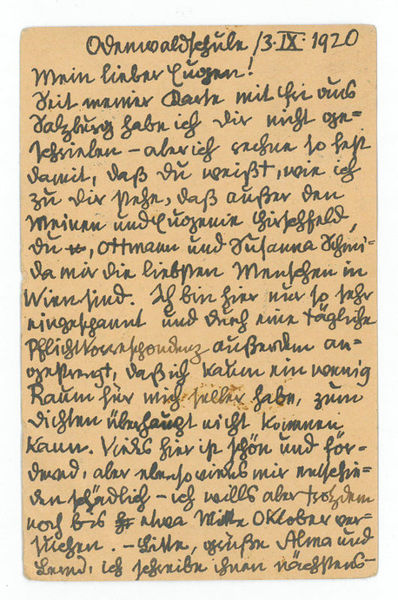 Odenwaldschule /3.IX.1920
Mein lieber Eugen!
Seit meiner Karte mit Fri aus
Salzburg habe ich dir nicht ge=
schrieben – aber ich rechne so fest
damit, daß du weißt, wie ich
zu dir stehe, daß außer den
Meinen und Eugenie Hirschfeld,
du, Ottmann und Susanna Schmi=
da mir die liebsten Menschen in
Wien sind. Ich bin hier nur so sehr
eingespannt und durch eine tägliche
Pflichtkorrespondenz außerdem an=
gestrengt, daß ich kaum ein wenig
Raum für mich selber habe, zum
dichten überhaupt nicht kommen
kann. Vieles hier ist schön und för=
dernd, aber ebenso vieles mir entschie=
den schädlich – ich wills aber trotzdem
noch bis etwa Mitte Oktober ver=
suchen. – Bitte, grüße Alma und
ich schreibe ihnen nächstens